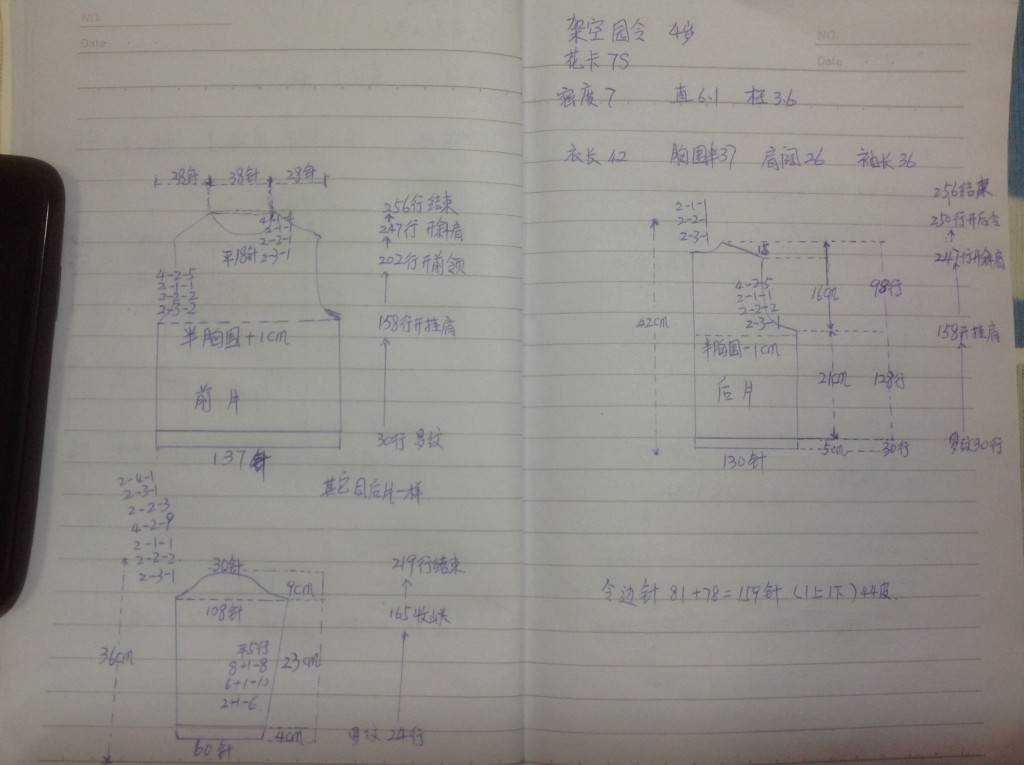 NO.
Date
28针 38针 28针
4-1-4
2-1-1
2-2-1
2-3-1
平18针
256行结束
247行 开斜肩
202行开前领
4-2-5
2-1-1
2-2-2
2-3-2
158行开挂肩
半胸围+1cm
前片
30行罗纹
137针
其它同后片一样
2-4-1
2-3-1
2-2-3
4-2-9
2-1-1
2-2-2
2-3-1
30针
9cm
219行结束
108针
165收
36cm
平5行
8+1-8
6+1-10
2+1-6
23cm
60针
4cm
罗纹 24行
架空园令 4岁
花卡7S
NO.
Date
密度7 直6.1 横3.6
衣长42 胸围半37 肩阔26 袖长36
2-1-1
2-2-1
2-3-1
256结束
250行开后令
247行开斜肩
18
4-2-5
2-1-1
2-2-2
2-3-1
16cm
98行
42cm
158开挂肩
半胸围-1cm
后片
21cm
128行
5cm
30行
罗纹30行
130针
令边针 81+78=159针 (1上1下) 44度